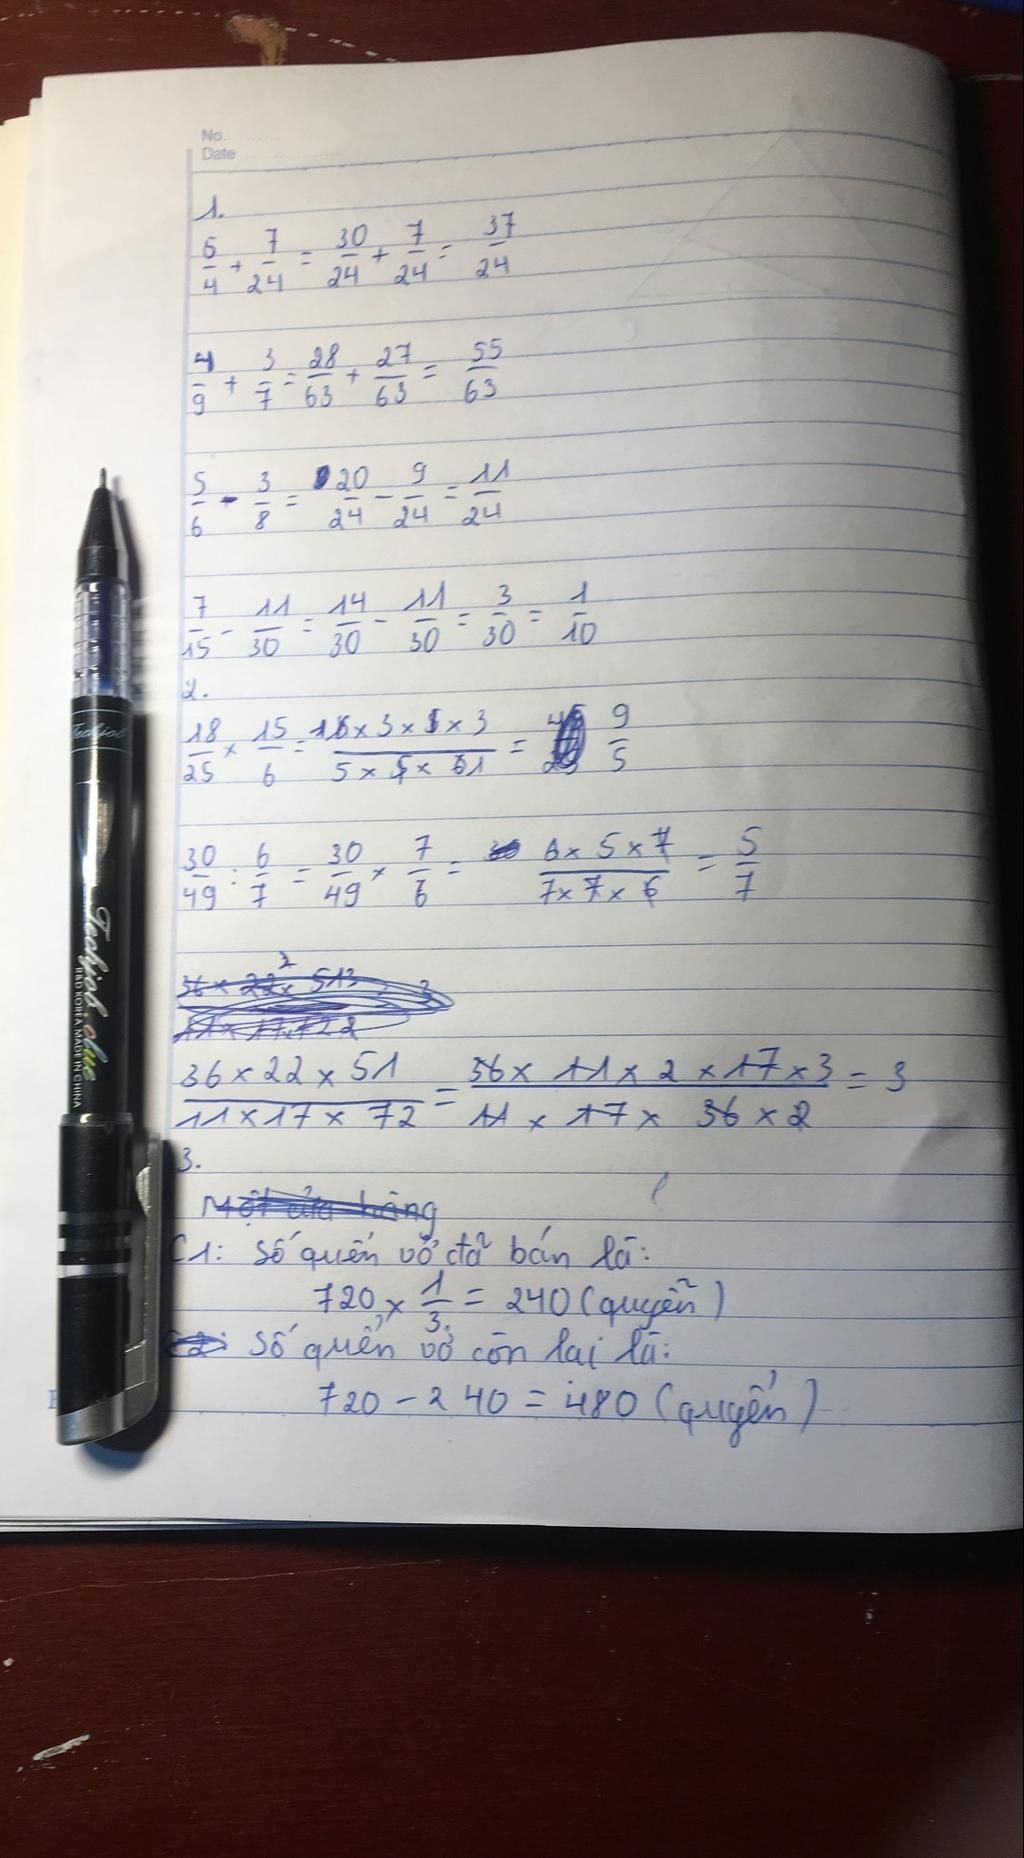 No.
Date
1.
5/4 + 7/24 = 30/24 + 7/24 = 37/24
4/9 + 3/7 = 28/63 + 27/63 = 55/63
5/6 - 3/8 = 20/24 - 9/24 = 11/24
7/15 - 11/30 = 14/30 - 11/30 = 3/30 = 1/10
2.
18/25 × 15/6 = (6 × 3 × 5 × 3)/(5 × 5 × 6) = 9/5
30/49 : 6/7 = 30/49 × 7/6 = (6 × 5 × 7)/(7 × 7 × 6) = 5/7
(36 × 22 × 51)/(11 × 17 × 72) = (36 × 11 × 2 × 17 × 3)/(11 × 17 × 36 × 2) = 3
3.
Một cửa hàng
C1: Số quển vở đã bán là:
720 × 1/3 = 240 (quyển)
Số quển vở còn lại là:
720 - 240 = 480 (quyển)
Techjob
Techjob. blue
R&D KOREA MADE IN CHINA